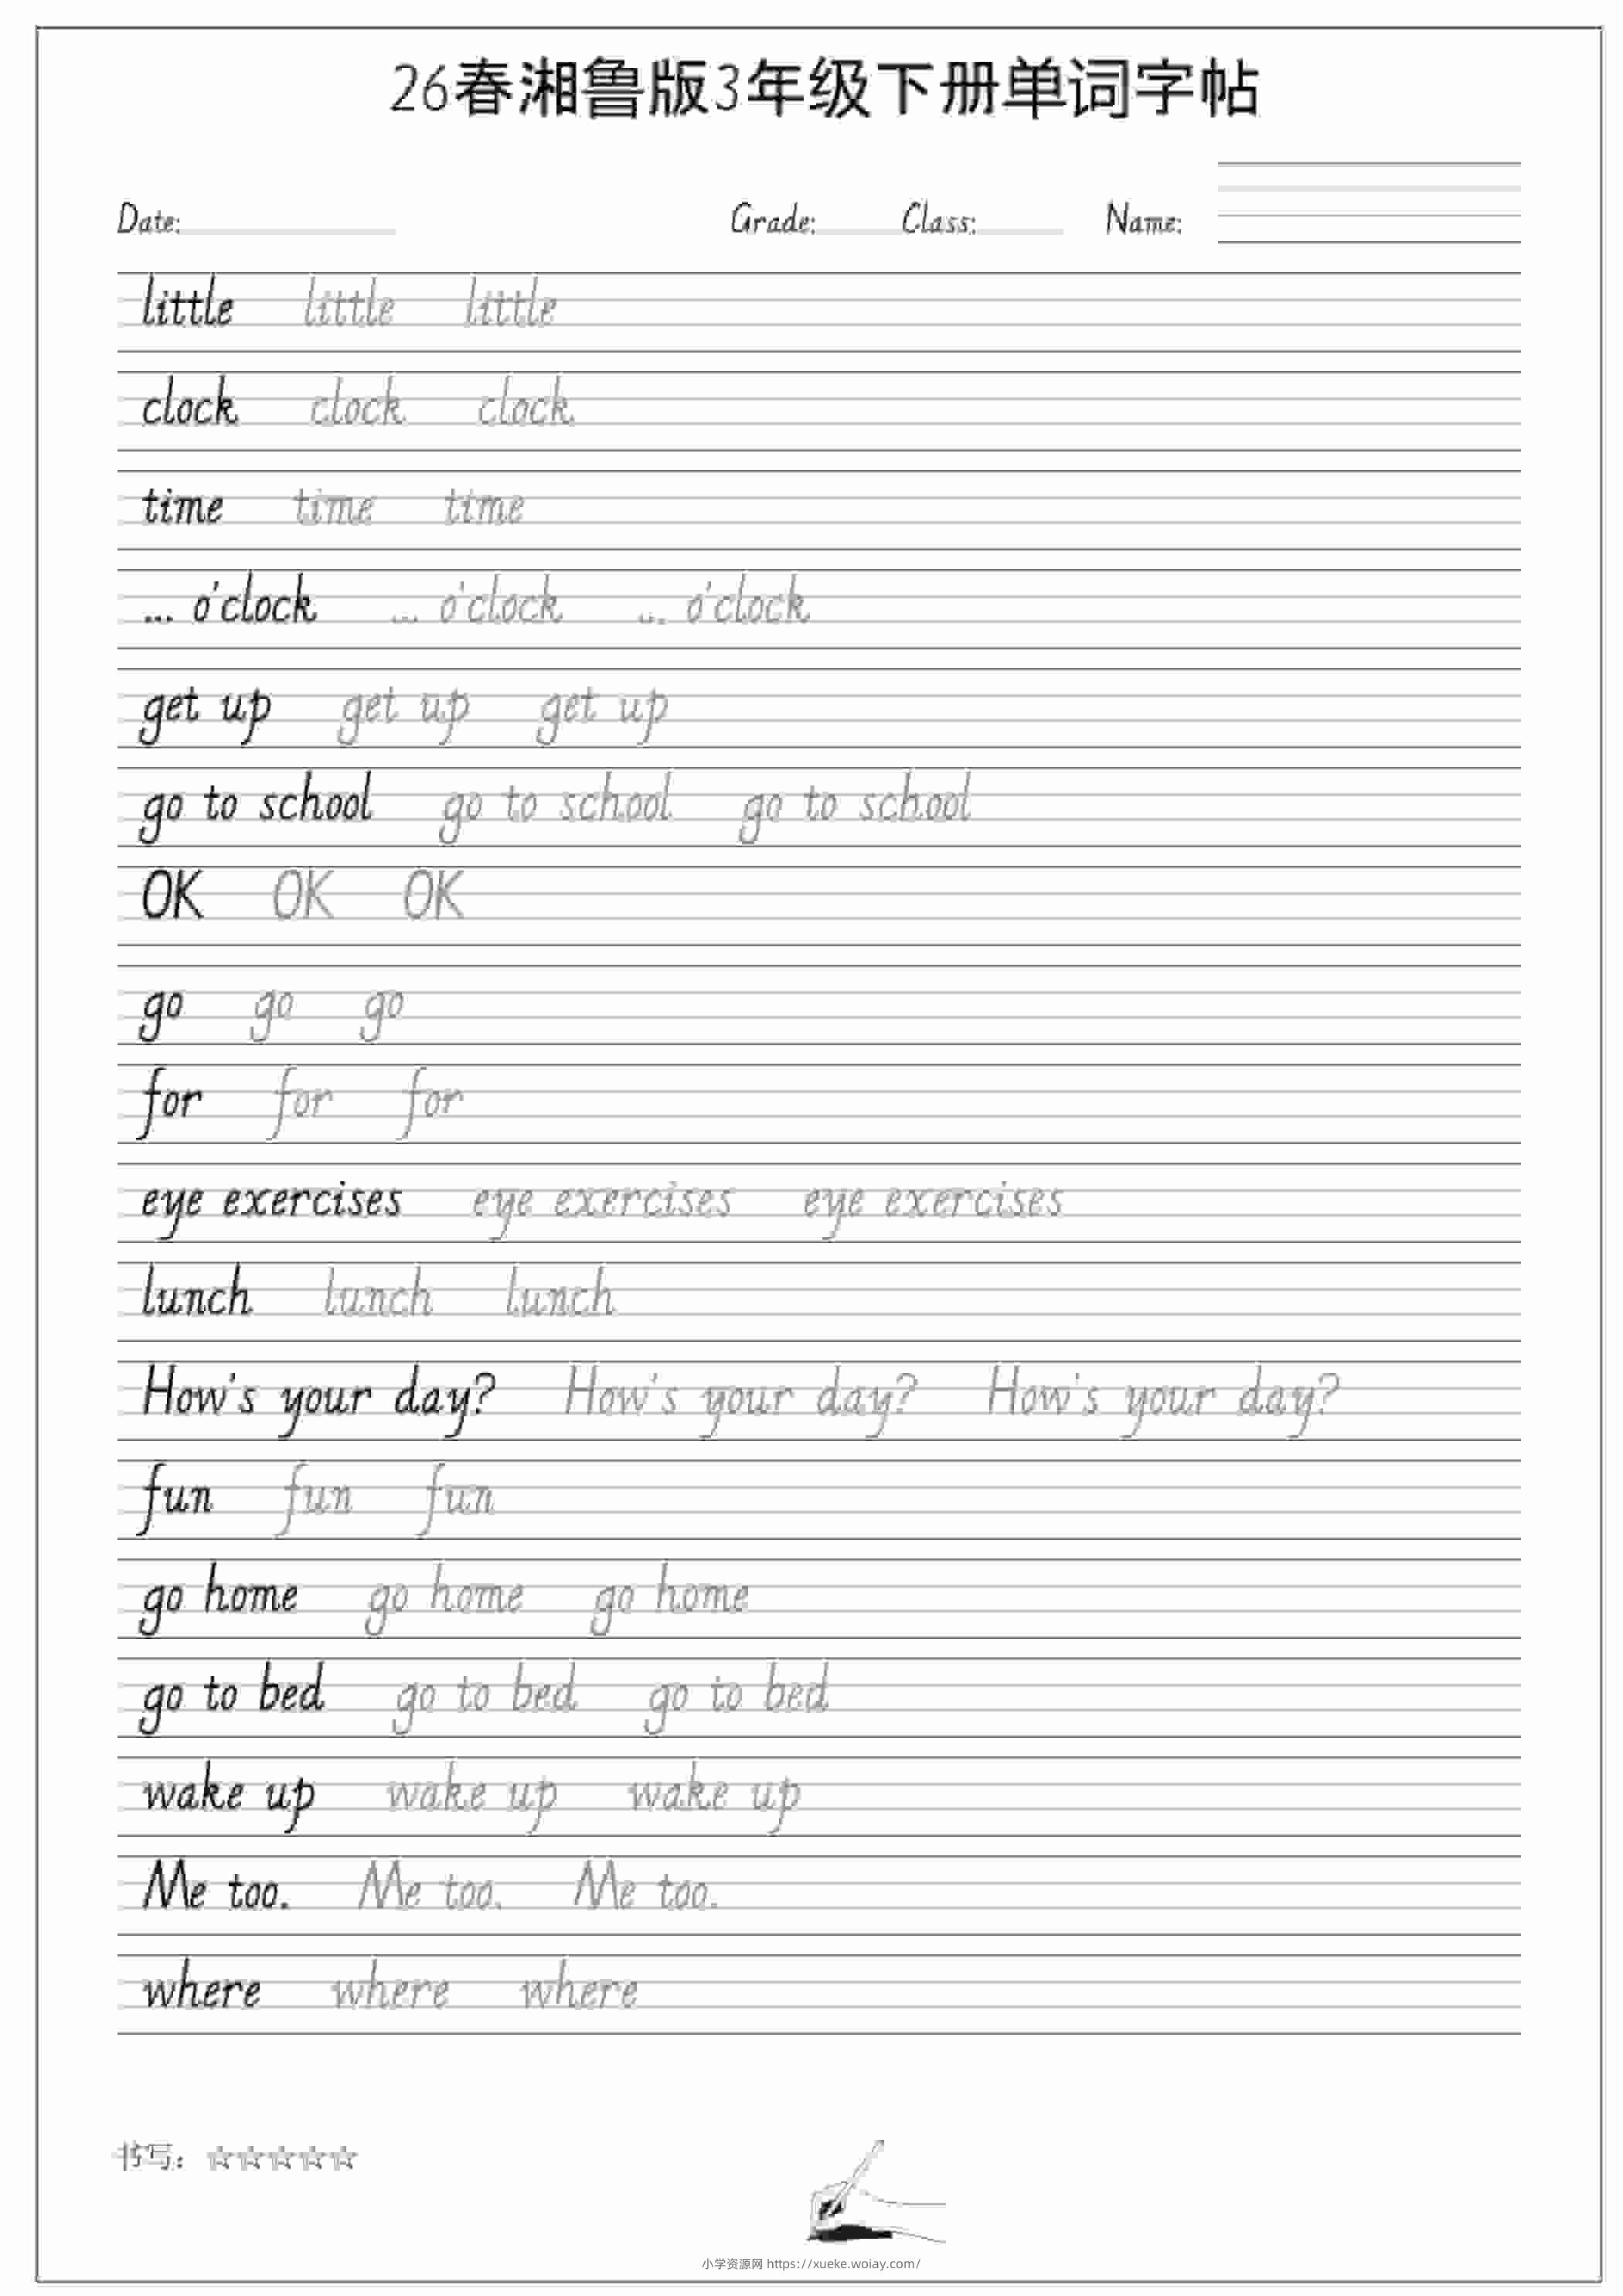 26春湘鲁版3年级下册单词字帖
Date: Grade: Class: Name:
little little little
clock clock clock
time time time
... o'clock ... o'clock ... o'clock
get up get up get up
go to school go to school go to school
OK OK OK
go go go
for for for
eye exercises eye exercises eye exercises
lunch lunch lunch
How's your day? How's your day? How's your day?
fun fun fun
go home go home go home
go to bed go to bed go to bed
wake up wake up wake up
Me too. Me too. Me too.
where where where
书写：☆☆☆☆☆
小学资源网 https://xueke.woiay.com/